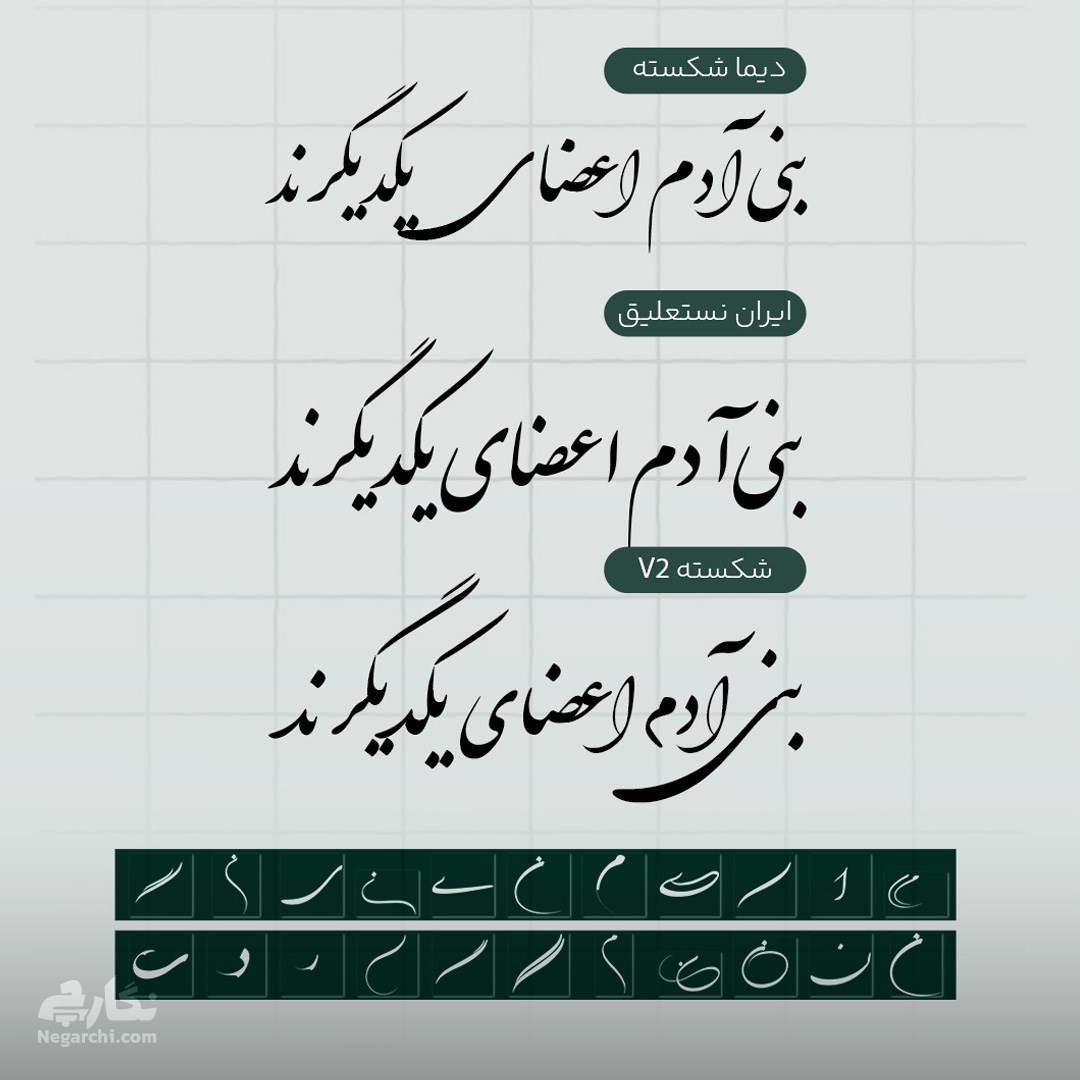 دیما شکسته
بنی آدم اعضای یکدیگرند
ایران نستعلیق
بنی آدم اعضای یکدیگرند
شکسته V2
بنی آدم اعضای یکدیگرند
نگارچی
Negarchi.com